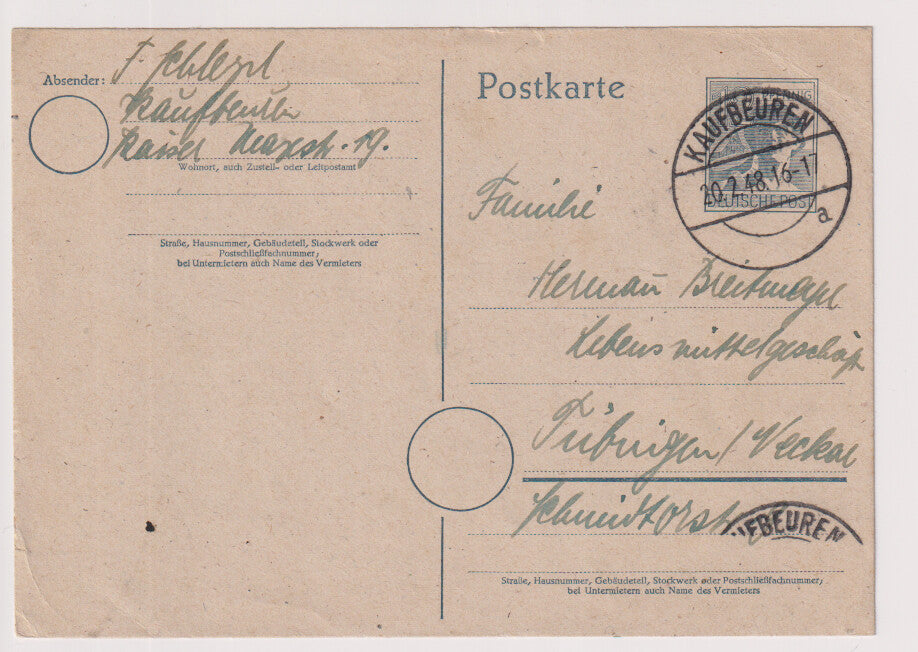 Absender: F. Schlegel
Kaufbeuren
Kaiser Maxstr. 19.
Wohnort, auch Zustell- oder Leitpostamt
Straße, Hausnummer, Gebäudeteil, Stockwerk oder
Postschließfachnummer;
bei Untermietern auch Name des Vermieters
Postkarte
PFENNIG
DEUTSCHE POST
KAUFBEUREN
20.2.48.16-17
a
Familie
Herman Breitmayer
Lebensmittelgeschäft
Tübingen/Neckar
Schmidtorstr.
KAUFBEUREN
Straße, Hausnummer, Gebäudeteil, Stockwerk oder Postschließfachnummer;
bei Untermietern auch Name des Vermieters